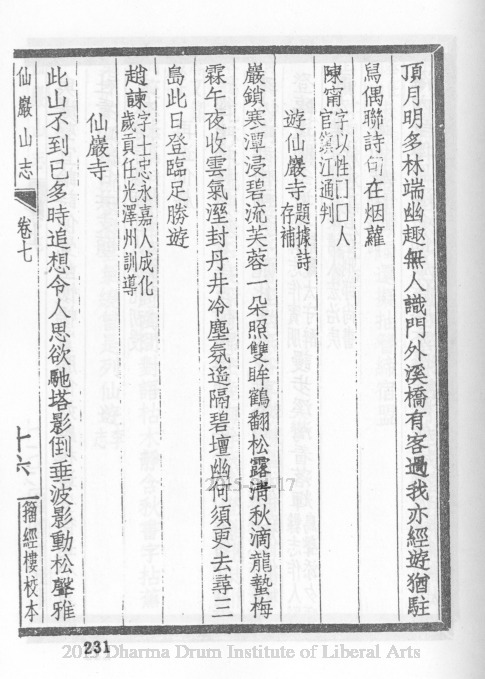 頂月明多林端幽趣無人識門外溪橋有客過我亦經遊猶駐
舄偶聯詩句在烟蘿
陳甯字以性囗囗人官鎮江通判
遊仙巖寺題據詩存補
巖鎖寒潭浸碧流芙蓉一朵照雙眸鶴翻松露淸秋滴龍蟄梅
霖午夜收雲氣溼封丹井冷塵氛遙隔碧壇幽何須更去尋三
島此日登臨足勝遊
趙諫字士忠永嘉人成化歲貢任光澤州訓導
仙巖寺
此山不到已多時追想令人思欲馳塔影倒垂波影動松聲雅
仙巖山志 卷七 十六 籀經樓校本
231
Dharma Drum Institute of Liberal Arts